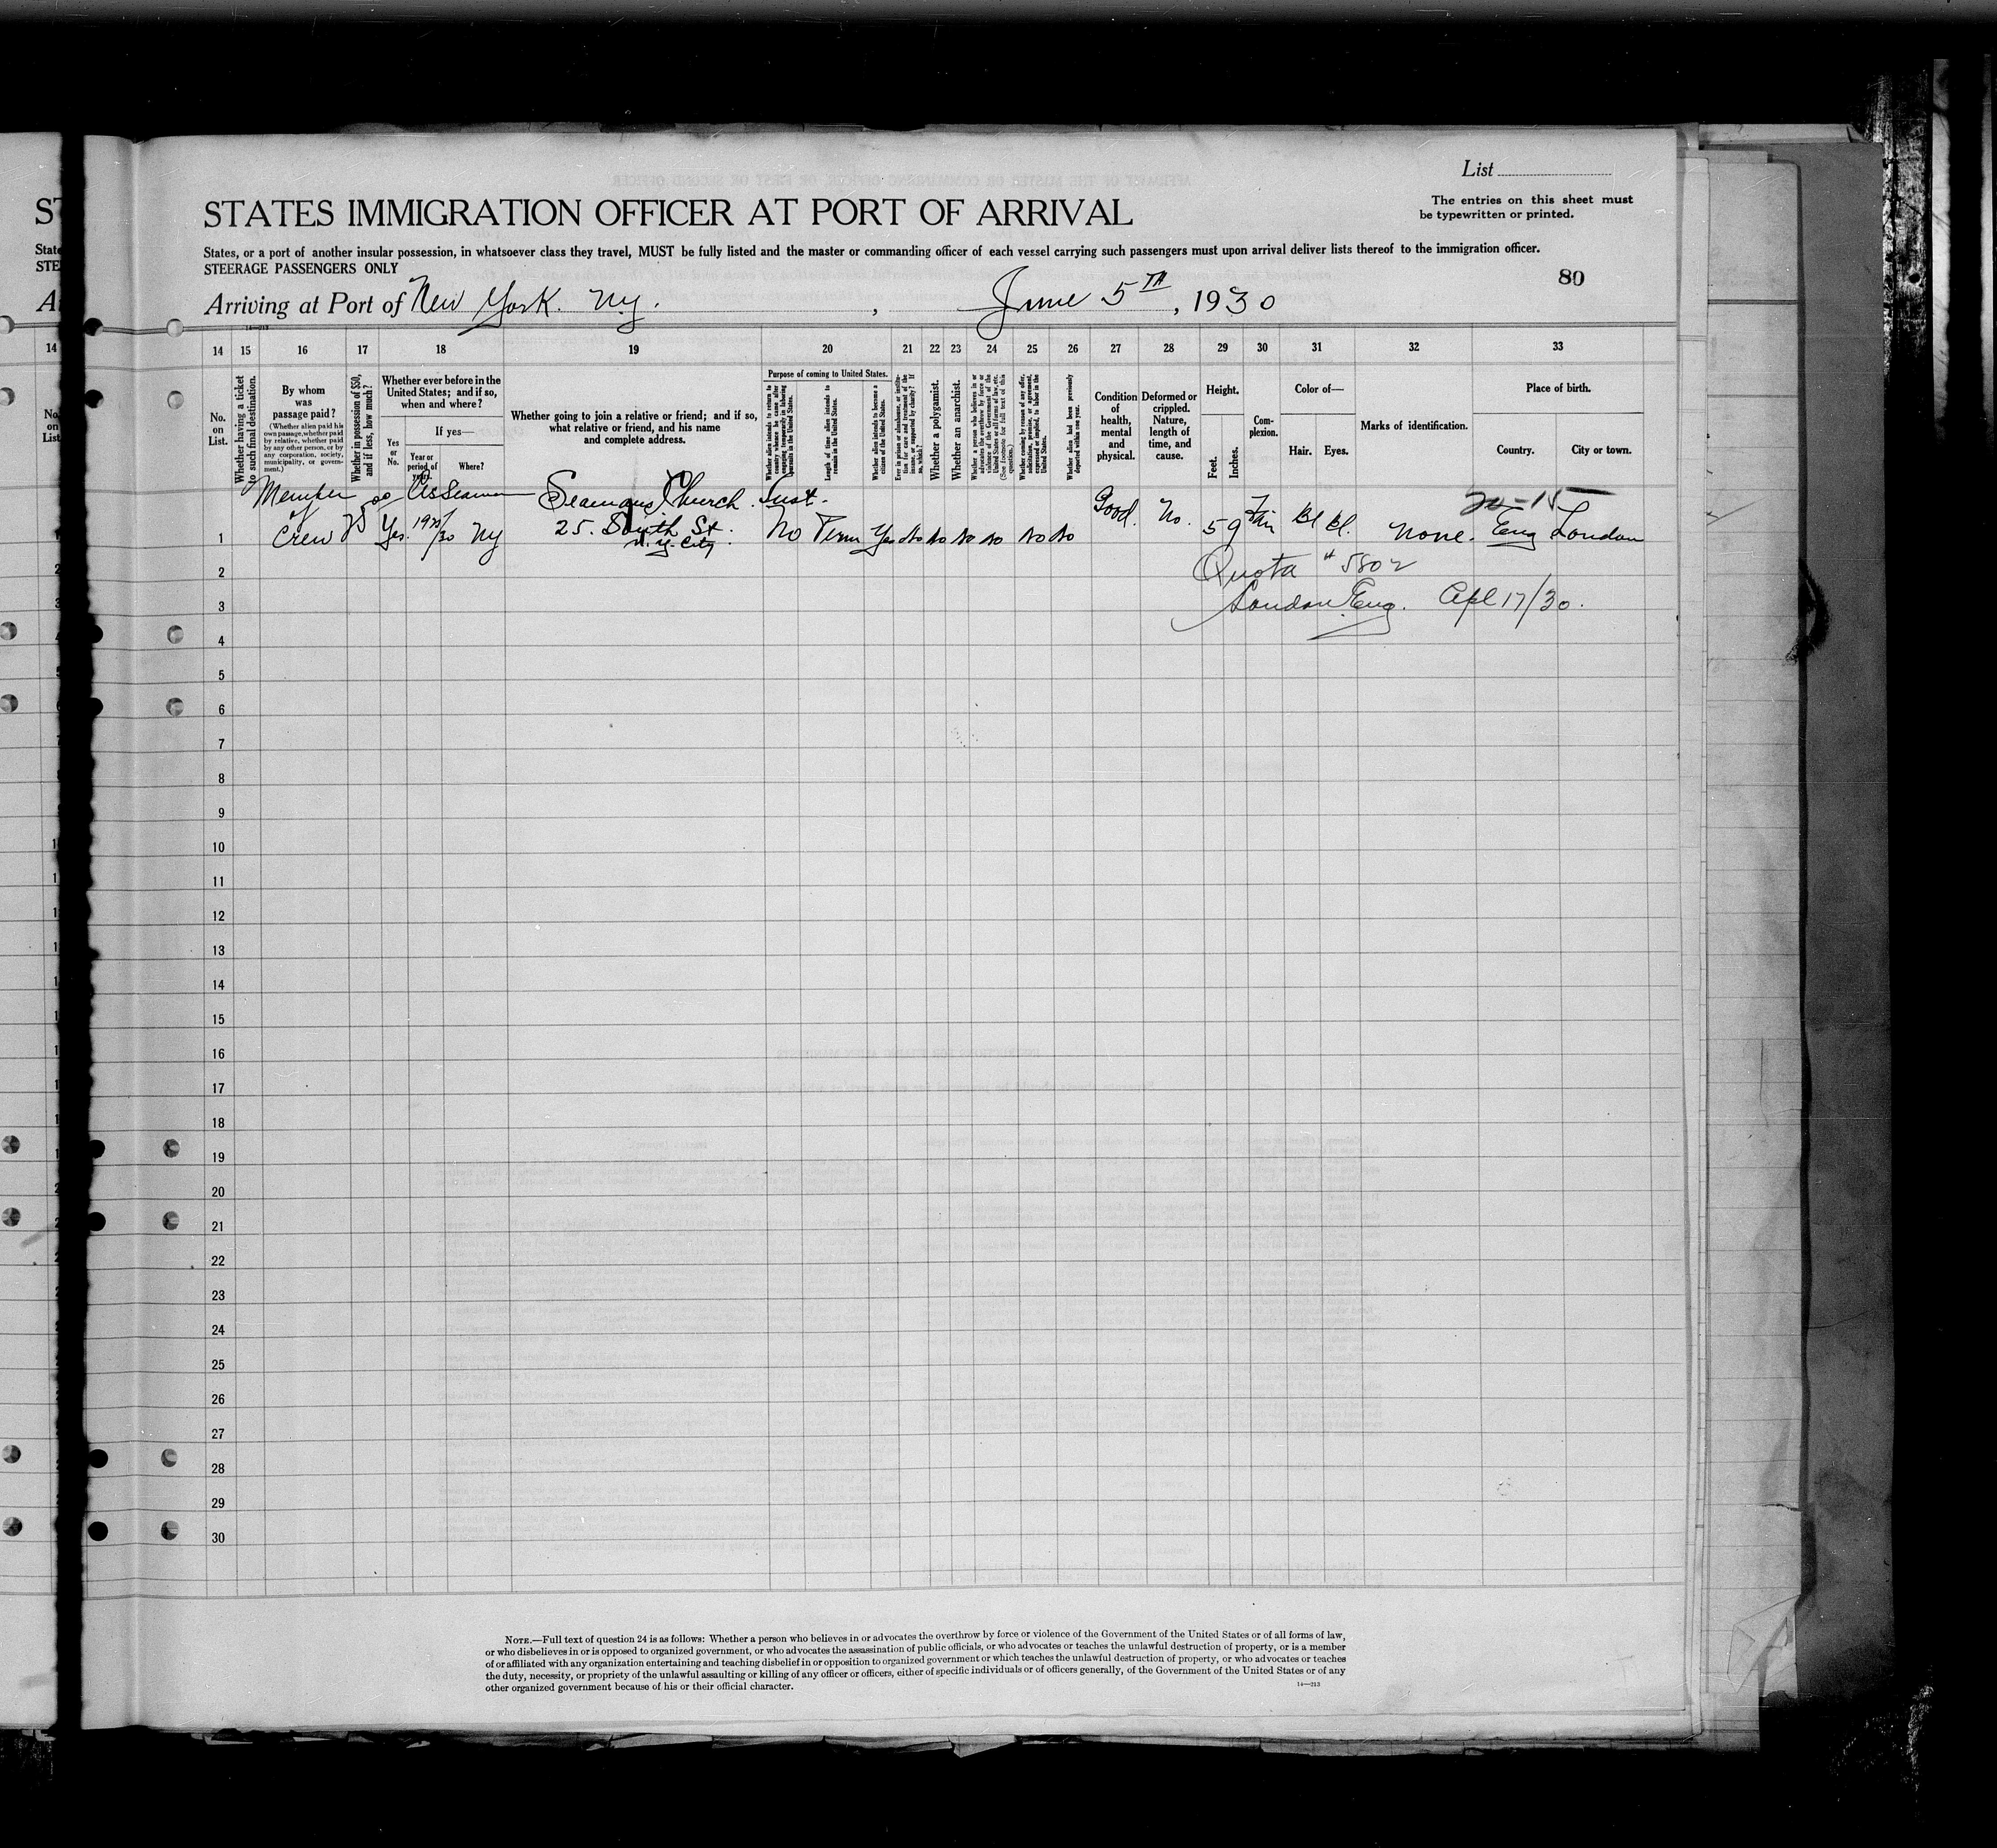 List
The entries on this sheet must
be typewritten or printed.
STATES IMMIGRATION OFFICER AT PORT OF ARRIVAL
States, or a port of another insular possession, in whatsoever class they travel, MUST be fully listed and the master or commanding officer of each vessel carrying such passengers must upon arrival deliver lists thereof to the immigration officer.
STEERAGE PASSENGERS ONLY
80
Arriving at Port of New York. Ny. , June 5TH, 1930
14—213
14 15 16 17 18 19 20 21 22 23 24 25 26 27 28 29 30 31 32 33
No. on List.
Whether having a ticket to such final destination.
By whom was passage paid?
(Whether alien paid his own passage, whether paid by relative, whether paid by any other person, or by any corporation, society, municipality, or government.)
Whether in possession of $50, and if less, how much?
Whether ever before in the United States; and if so, when and where?
Yes or No.
If yes—
Year or period of years.
Where?
Whether going to join a relative or friend; and if so, what relative or friend, and his name and complete address.
Purpose of coming to United States.
Whether alien intends to return to country whence he came after engaging temporarily in laboring pursuits in the United States.
Length of time alien intends to remain in the United States.
Whether alien intends to become a citizen of the United States.
Ever in prison or almshouse, or institution for care and treatment of the insane, or supported by charity? If so, which?
Whether a polygamist.
Whether an anarchist.
Whether a person who believes in or advocates the overthrow by force or violence of the Government of the United States or all forms of law, etc. (See footnote for full text of this question.)
Whether coming by reason of any offer, solicitation, promise, or agreement, expressed or implied, to labor in the United States.
Whether alien had been previously deported within one year.
Condition of health, mental and physical.
Deformed or crippled. Nature, length of time, and cause.
Height.
Feet. Inches.
Complexion.
Color of—
Hair. Eyes.
Marks of identification.
Place of birth.
Country. City or town.
Member As Seaman Seamans Church Inst.
of
1 Crew Yes Ny 25. South St. No Perm Yes No No No No No No Good. No. 5 9 Fair Bl Bl. none. Eng London
N.Y. City
2 Quota # 5802
3 London Eng. Apl 17/30.
4
5
6
7
8
9
10
11
12
13
14
15
16
17
18
19
20
21
22
23
24
25
26
27
28
29
30
NOTE.—Full text of question 24 is as follows: Whether a person who believes in or advocates the overthrow by force or violence of the Government of the United States or of all forms of law,
or who disbelieves in or is opposed to organized government, or who advocates the assassination of public officials, or who advocates or teaches the unlawful destruction of property, or is a member
of or affiliated with any organization entertaining and teaching disbelief in or opposition to organized government or which teaches the unlawful destruction of property, or who advocates or teaches
the duty, necessity, or propriety of the unlawful assaulting or killing of any officer or officers, either of specific individuals or of officers generally, of the Government of the United States or of any
other organized government because of his or their official character.
14—213